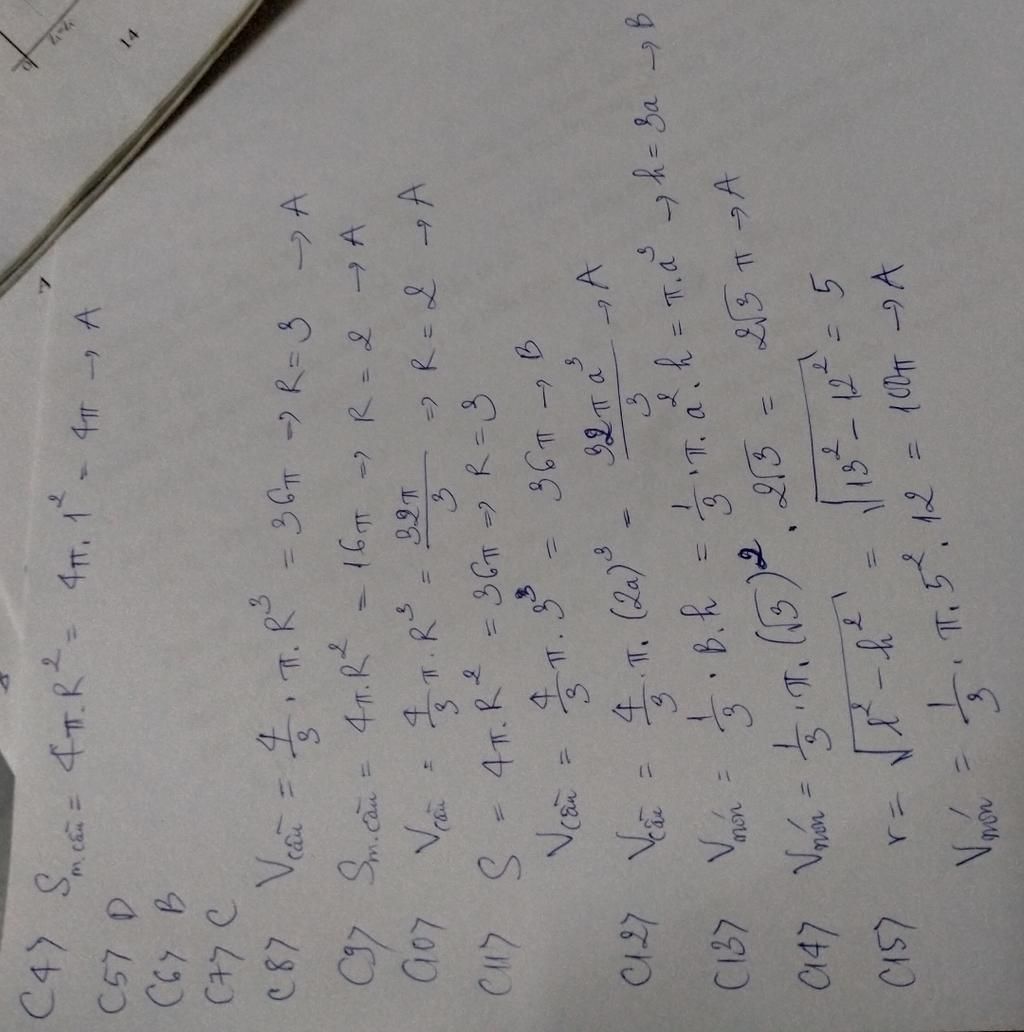 C4> S m.cầu = 4π.R² = 4π.1² = 4π → A
C5> D
C6> B
C7> C
C8> Vcầu = 4/3 . π.R³ = 36π → R=3 → A
C9> S m.cầu = 4π.R² = 16π => R=2 → A
C10> Vcầu = 4/3 π.R³ = 32π/3 => R=2 → A
C11> S = 4π.R² = 36π => R=3
Vcầu = 4/3 π.3³ = 36π → B
C12> Vcầu = 4/3 . π.(2a)³ = 32πa³/3 → A
C13> Vnón = 1/3 . B.h = 1/3 . π.a².h = π.a³ → h=3a → B
C14> Vnón = 1/3 . π.(√3)² . 2√3 = 2√3 π → A
C15> r = √(l²-h²) = √(13²-12²) = 5
Vnón = 1/3 . π.5².12 = 100π → A
14